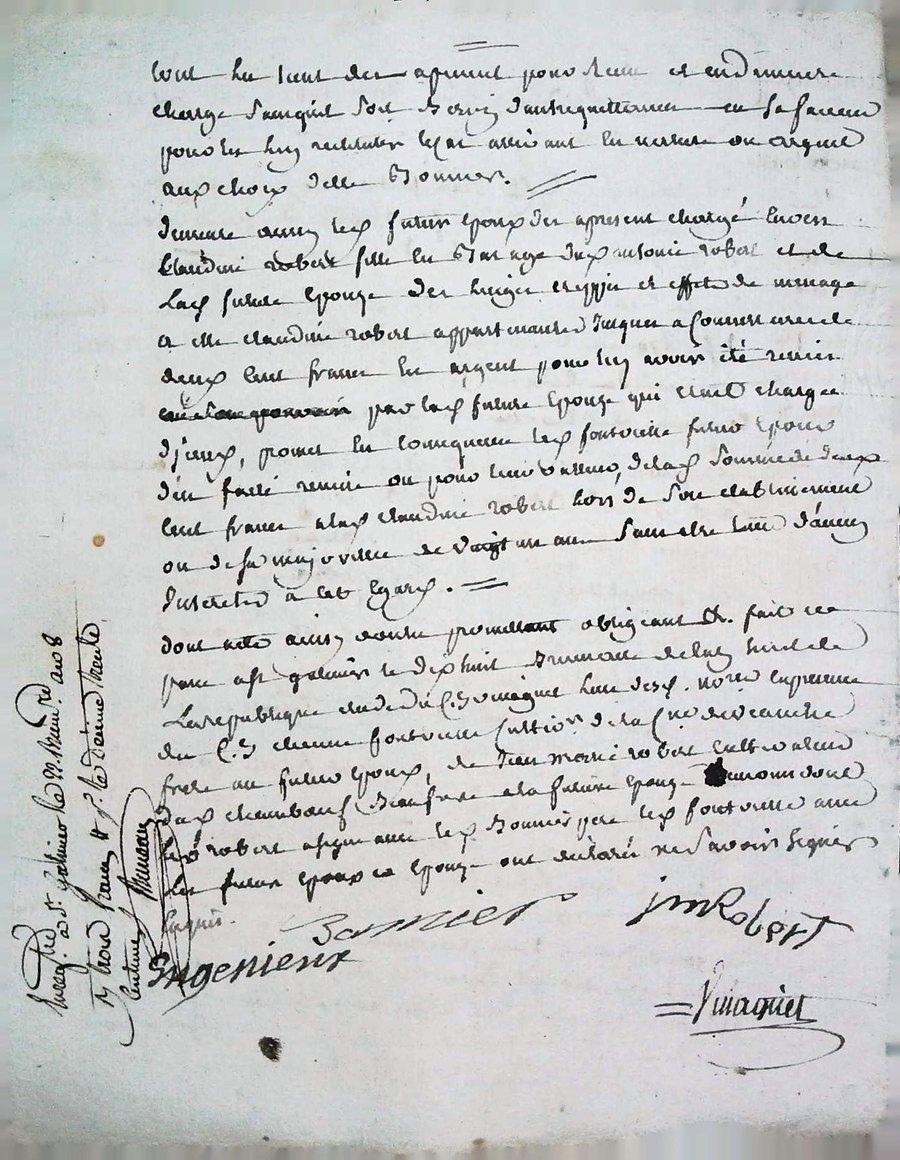 tout le tout des apresent pour lieu et en demeure
charge sans quil soit besoin d'autre quittance en sa faveur
pour les luy restituer le cas arrivant en nature ou argent
aux choix dud. Bonnier.
demeure aussy led. futur epoux des apresent chargé envers
Claudine robert fille du mariage dud. antoine robert et de
lad. future epouse des linges nippes et effets de menage
a elle claudine robert appartenants jusques a concurrence de
deux cent francs en argent pour luy avoir été remis
par lad. future epouse qui etoit chargée
d'iceux, promet en consequence led. fontvieille futur epoux
d'en faire remise ou pour leur valleur, de lad. somme de deux
cent francs a lad. claudine robert lors de son etablissement
ou de sa majorité de vingt un ans sans etre tenu d'aucun
interets a cet egard.
dont acte ainsy voulu promettant obligeant &. fait et
passé a St galmier le dix huit Brumaire de l'an huit de
la republique etude du C. Vmagniet lun desd. not. en presence
du C. Etienne fontvieille cultiv. de la C.ne de
frere au futur epoux, de Jean marie robert cultivateur
dud. chambœuf Beaufrere a la future epouse
robert a signé avec led. Bonnier pere led. fontvieille avec
les futurs epoux et epouse ont déclaré ne savoir signer
enquis.
Bonnier
jm Robert
Ingenieux
Vmagniet
Enreg.tré a St galmier le 22 Brum.re an 8
R. trois francs & p.r le dixieme trente
centimes